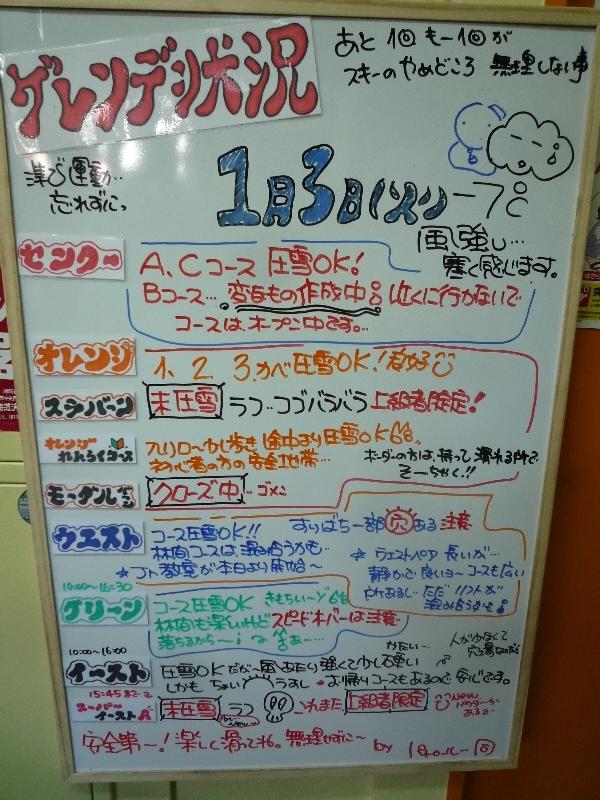 ゲレンデ状況
あと1回もー1回が
スキーのやめどころ 無理しない事
準び運動…
忘れずにっ
1月3日(火) -7℃
風強し…
寒く感じます。
センター
A、Cコース 圧雪OK!
Bコース… 変なもの作成中 近くに行かないで
コースはオープン中です。…
オレンジ
1、2、3、カベ圧雪OK!良好
ステバーン
未圧雪 ラフ…コブバラバラ 上級者限定!
オレンジ
れんらくコース
途中より圧雪OK
初心者の方の安全地帯…
ボーダーの方は、持って滑れる所で
そーちゃく!!
モーグルバーン
クローズ中…ゴメン
ウエスト
コース圧雪OK!!
林間コースは混み合うかも…
Jr.教室が本日より開始〜
すりばち一部穴ある 注意
ウエストペア 長いが…
静かで良いヨ〜コースも広い
ただリフトが
混み合うかも
10:00〜16:30
グリーン
コース圧雪OK きもちいーゾ
林間も楽しいけどスピードオーバーは注意
落ちるから〜
10:00〜16:00
イースト
圧雪OKだが…風あたり強くて少し硬い
かたい…
しかも ちょい うすし お帰りコースもあるので安心です。
人が少なくて
穴場なのだ
15:45まで
スーパー
イーストA
未圧雪 ラフ これまた 上級者限定
New
安全第一!楽しく滑ってね。無理せずに〜
by パトロール